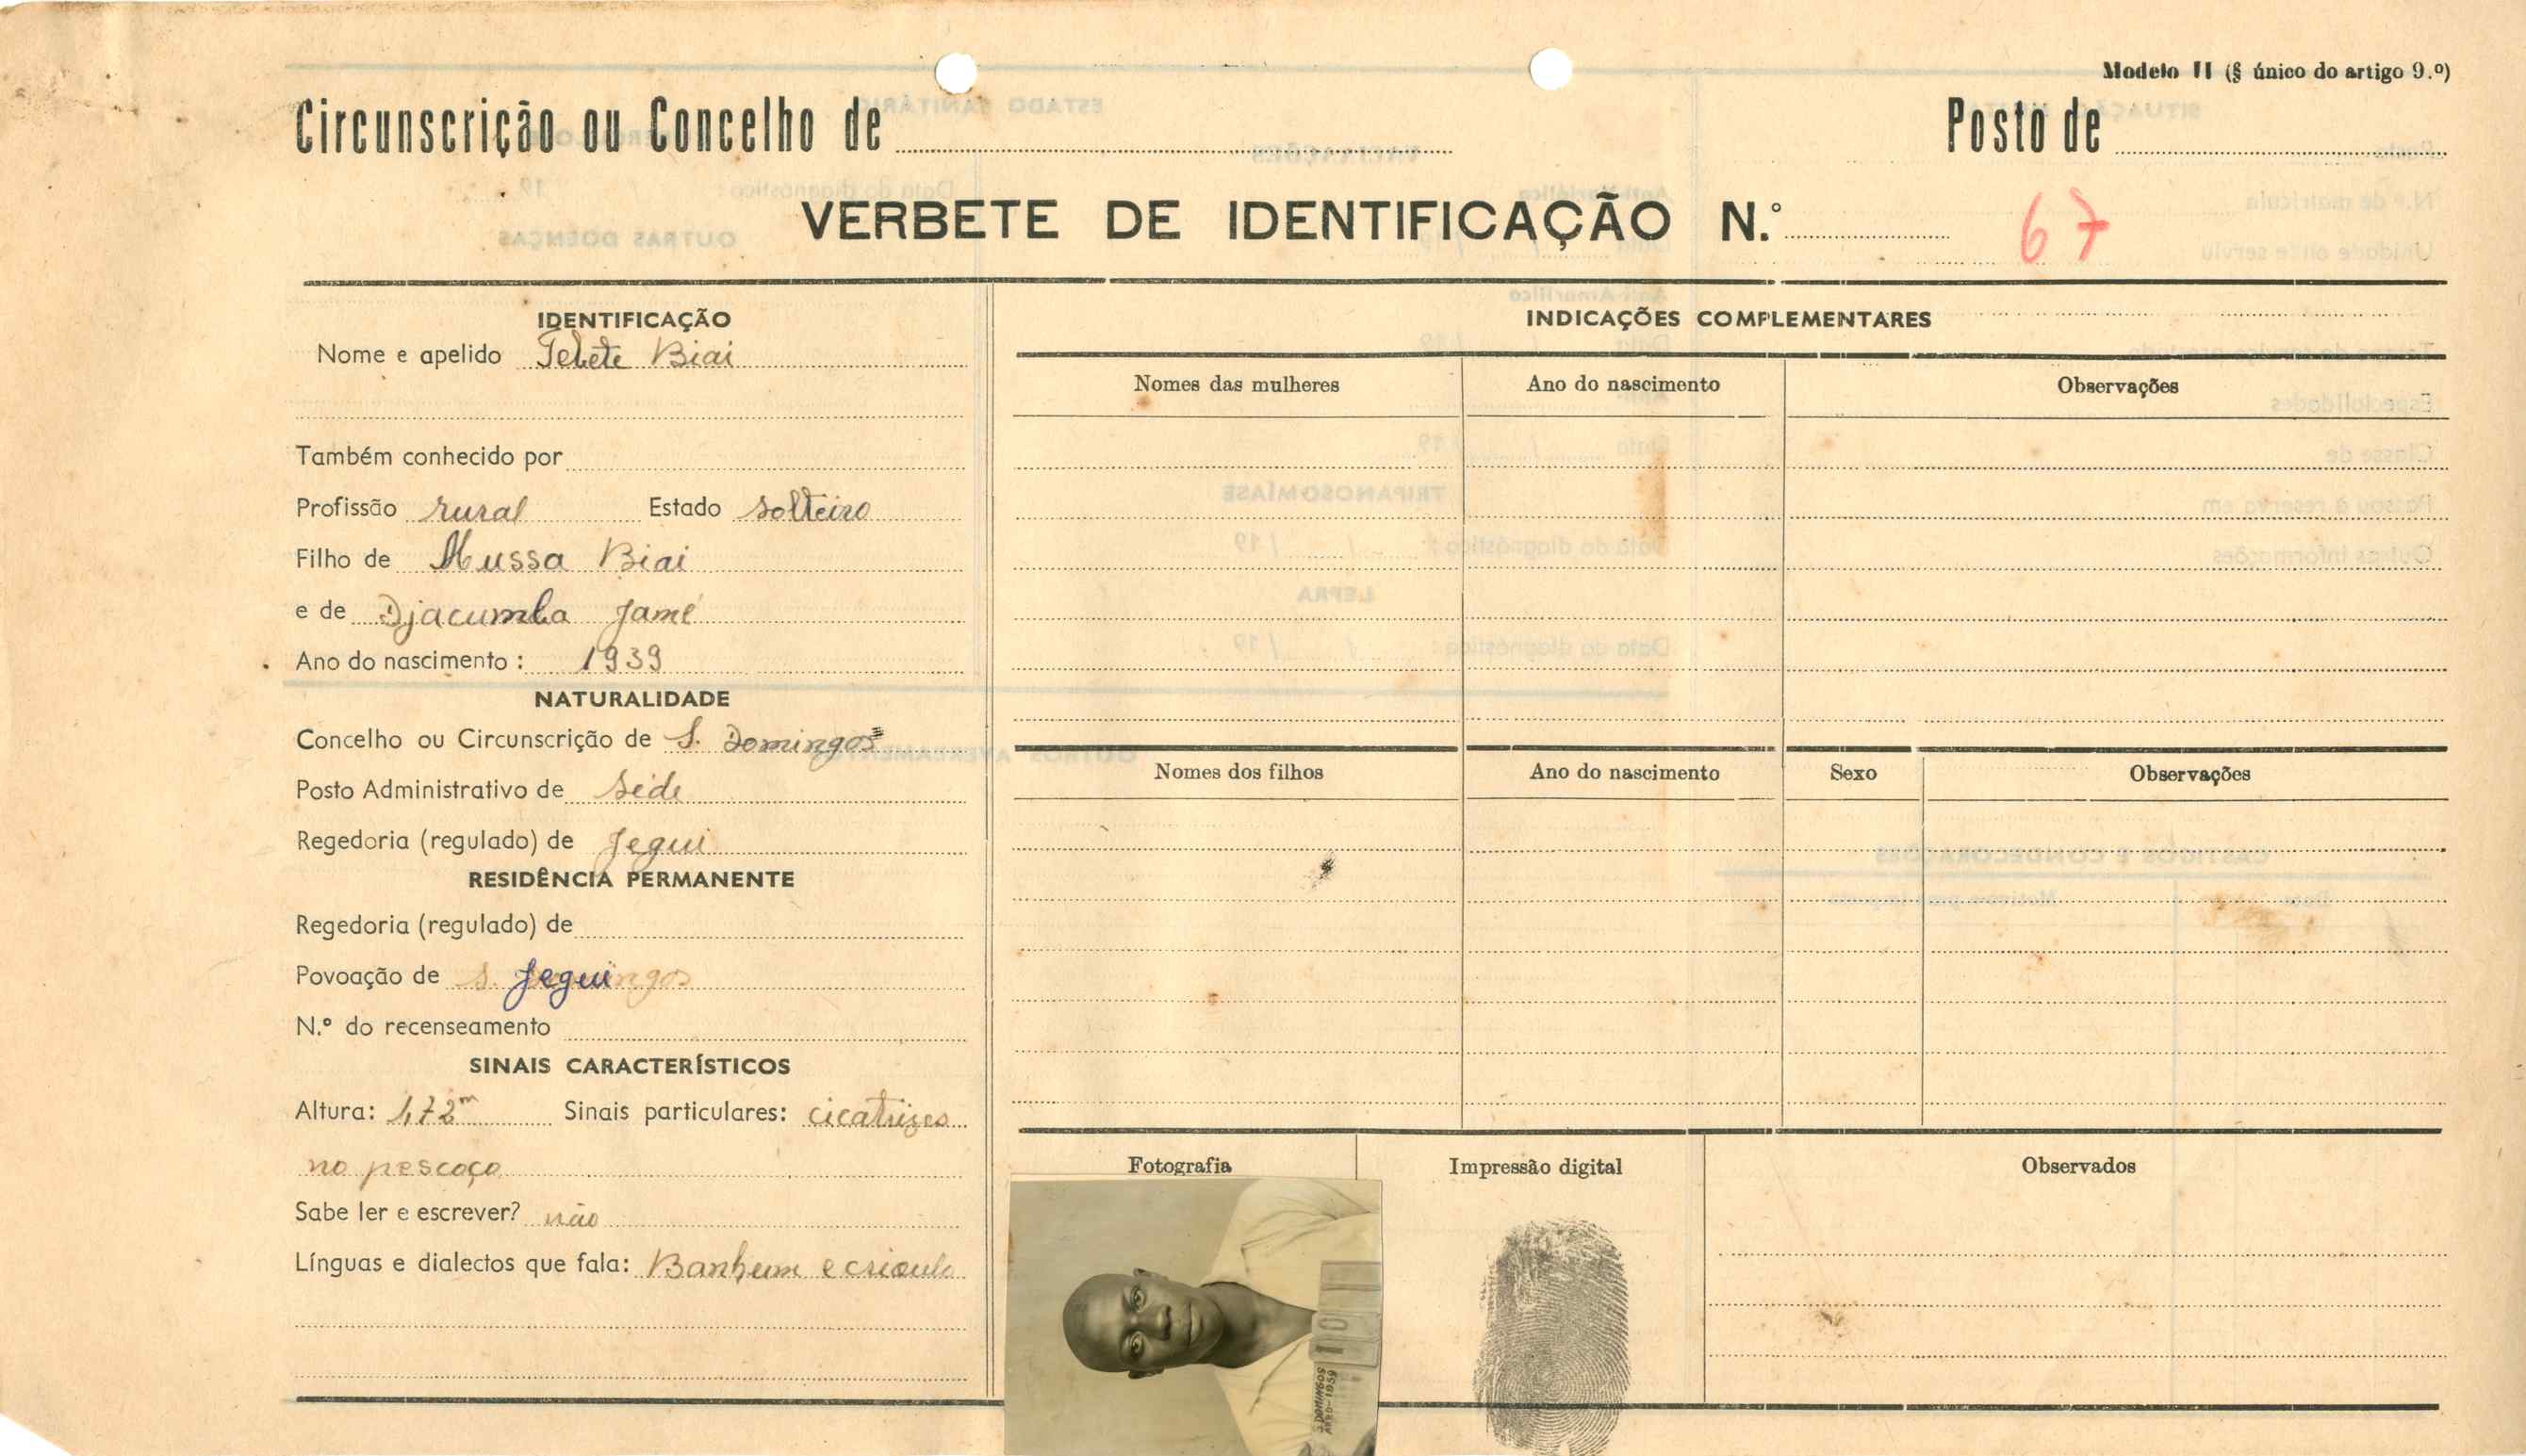 Modelo II (§ único do artigo 9.º)
Circunscrição ou Concelho de
Posto de
VERBETE DE IDENTIFICAÇÃO N.º 67
IDENTIFICAÇÃO
Nome e apelido Tebete Biai
Também conhecido por
Profissão rural Estado solteiro
Filho de Mussa Biai
e de Djacumba Jamé
Ano do nascimento: 1939
NATURALIDADE
Concelho ou Circunscrição de S. Domingos
Posto Administrativo de Séde
Regedoria (regulado) de Jegui
RESIDÊNCIA PERMANENTE
Regedoria (regulado) de
Povoação de Jegui
N.º do recenseamento
SINAIS CARACTERÍSTICOS
Altura: 1,72m Sinais particulares: cicatrizes
no pescoço
Sabe ler e escrever? não
Línguas e dialectos que fala: Banhum e crioulo
INDICAÇÕES COMPLEMENTARES
Nomes das mulheres Ano do nascimento Observações
Nomes dos filhos Ano do nascimento Sexo Observações
Fotografia Impressão digital Observados
10
S. DOMINGOS
1959